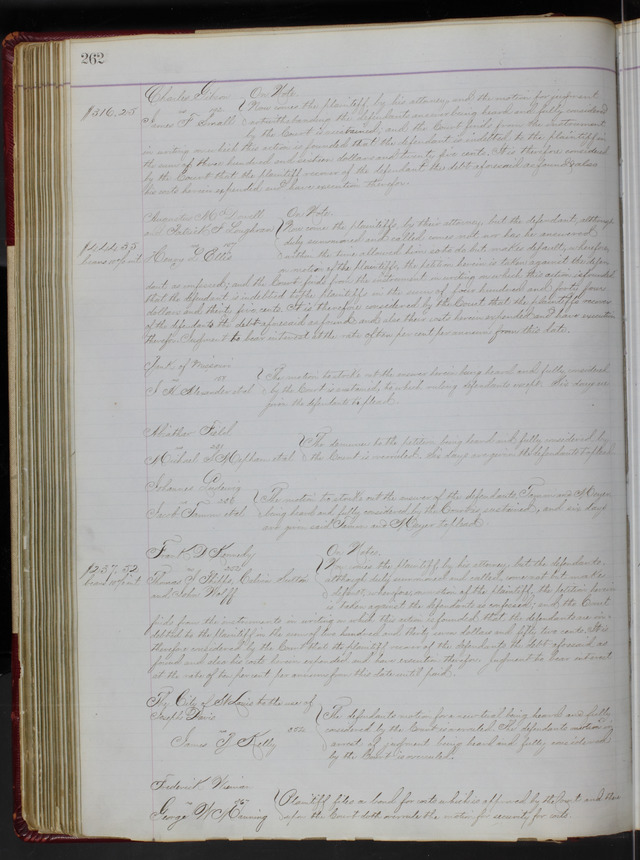 262
Charles Gibson On Note.
vs Now comes the plaintiff by his attorney and the motion for judgment
$316.25 James F. Small notwithstanding the defendants answer being heard and fully considered
by the Court is sustained, and the Court finds from the instrument
in writing on which this action is founded that the defendant is indebted to the plaintiff in
the sum of three hundred and sixteen dollars and twenty five cents. It is therefore considered
by the Court that the plaintiff recover of the defendant the debt aforesaid as found & also
his costs herein expended and have execution therefor.
Augustus McDowell On Note.
and Patrick F. Loughran Now come the plaintiffs by their attorney but the defendant, although
vs duly summoned and called comes not nor has he answered
$444.35 Henry Ellis within the time allowed him so to do but makes default, wherefore
on motion of the plaintiffs, the petition herein is taken against the defen-
dant as confessed; and the Court finds from the instrument in writing on which this action is founded
that the defendant is indebted to the plaintiffs in the sum of four hundred and forty four
dollars and thirty five cents. It is therefore considered by the Court that the plaintiffs recover
of the defendant the debt aforesaid as found and also their costs herein expended and have execution
therefor. Judgment to bear interest at the rate of ten per cent per annum from this date.
Bank of Missouri
vs The motion to strike out the answer herein being heard and fully considered
Alexander et al by the Court is sustained, to which ruling defendants except. Six days are
given the defendants to plead.
Field
vs The demurrer to the petition being heard and fully considered by
Michael McMephan et al the Court is overruled. Six days are given the defendants to plead.
Johannes Ludwig
vs The motion to strike out the answer of the defendants and Meyer
Jacob et al being heard and fully considered by the Court is sustained, and six days
are given said and Meyer to plead.
Frank On Notes.
vs Now comes the plaintiff by his attorney but the defendants,
$237.52 Thomas J. Phelps, Calvin Sutton although duly summoned and called, come not but make
and John Wolff default, wherefore on motion of the plaintiff, the petition herein
is taken against the defendants as confessed; and the Court
finds from the instruments in writing on which this action is founded, that the defendants are in-
debted to the plaintiff in the sum of two hundred and thirty seven dollars and fifty two cents. It is
therefore considered by the Court that the plaintiff recover of the defendants the debt aforesaid as
found and also his costs herein expended and have execution therefor. Judgment to bear interest
at the rate of ten per cent per annum from this date until paid.
The City of St Louis to the use of
Joseph Davis The defendants motion for a new trial being heard and fully
vs considered by the Court is overruled. The defendants motion in
James Kelly arrest of judgment being heard and fully considered
by the Court is overruled.
Frederick
vs Plaintiff files a bond for costs which is approved by the Court and there-
George W. Manning upon the Court doth overrule the motion for security for costs.